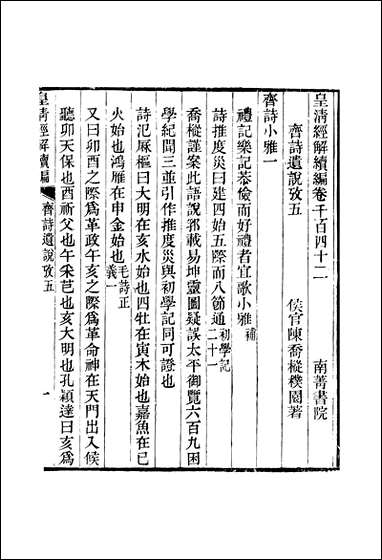 皇清經解續編卷千百四十二
南菁書院
齊詩遺說攷五
侯官陳喬樅樸園著
齊詩小雅一
禮記樂記恭儉而好禮者宜歌小雅補
詩推度災曰建四始五際而八節通初學記二十一
喬樅謹案此語說郛載易坤靈圖疑誤太平御覽六百九困
學紀聞三並引作推度災與初學記同可證也
詩氾厤樞曰大明在亥水始也四牡在寅木始也嘉魚在巳
火始也鴻雁在申金始也毛詩正義一
又曰卯酉之際爲革政午亥之際爲革命神在天門出入候
聽卯天保也酉祈父也午采芑也亥大明也孔穎達曰亥爲
皇清經解續編
齊詩遺說攷五
一